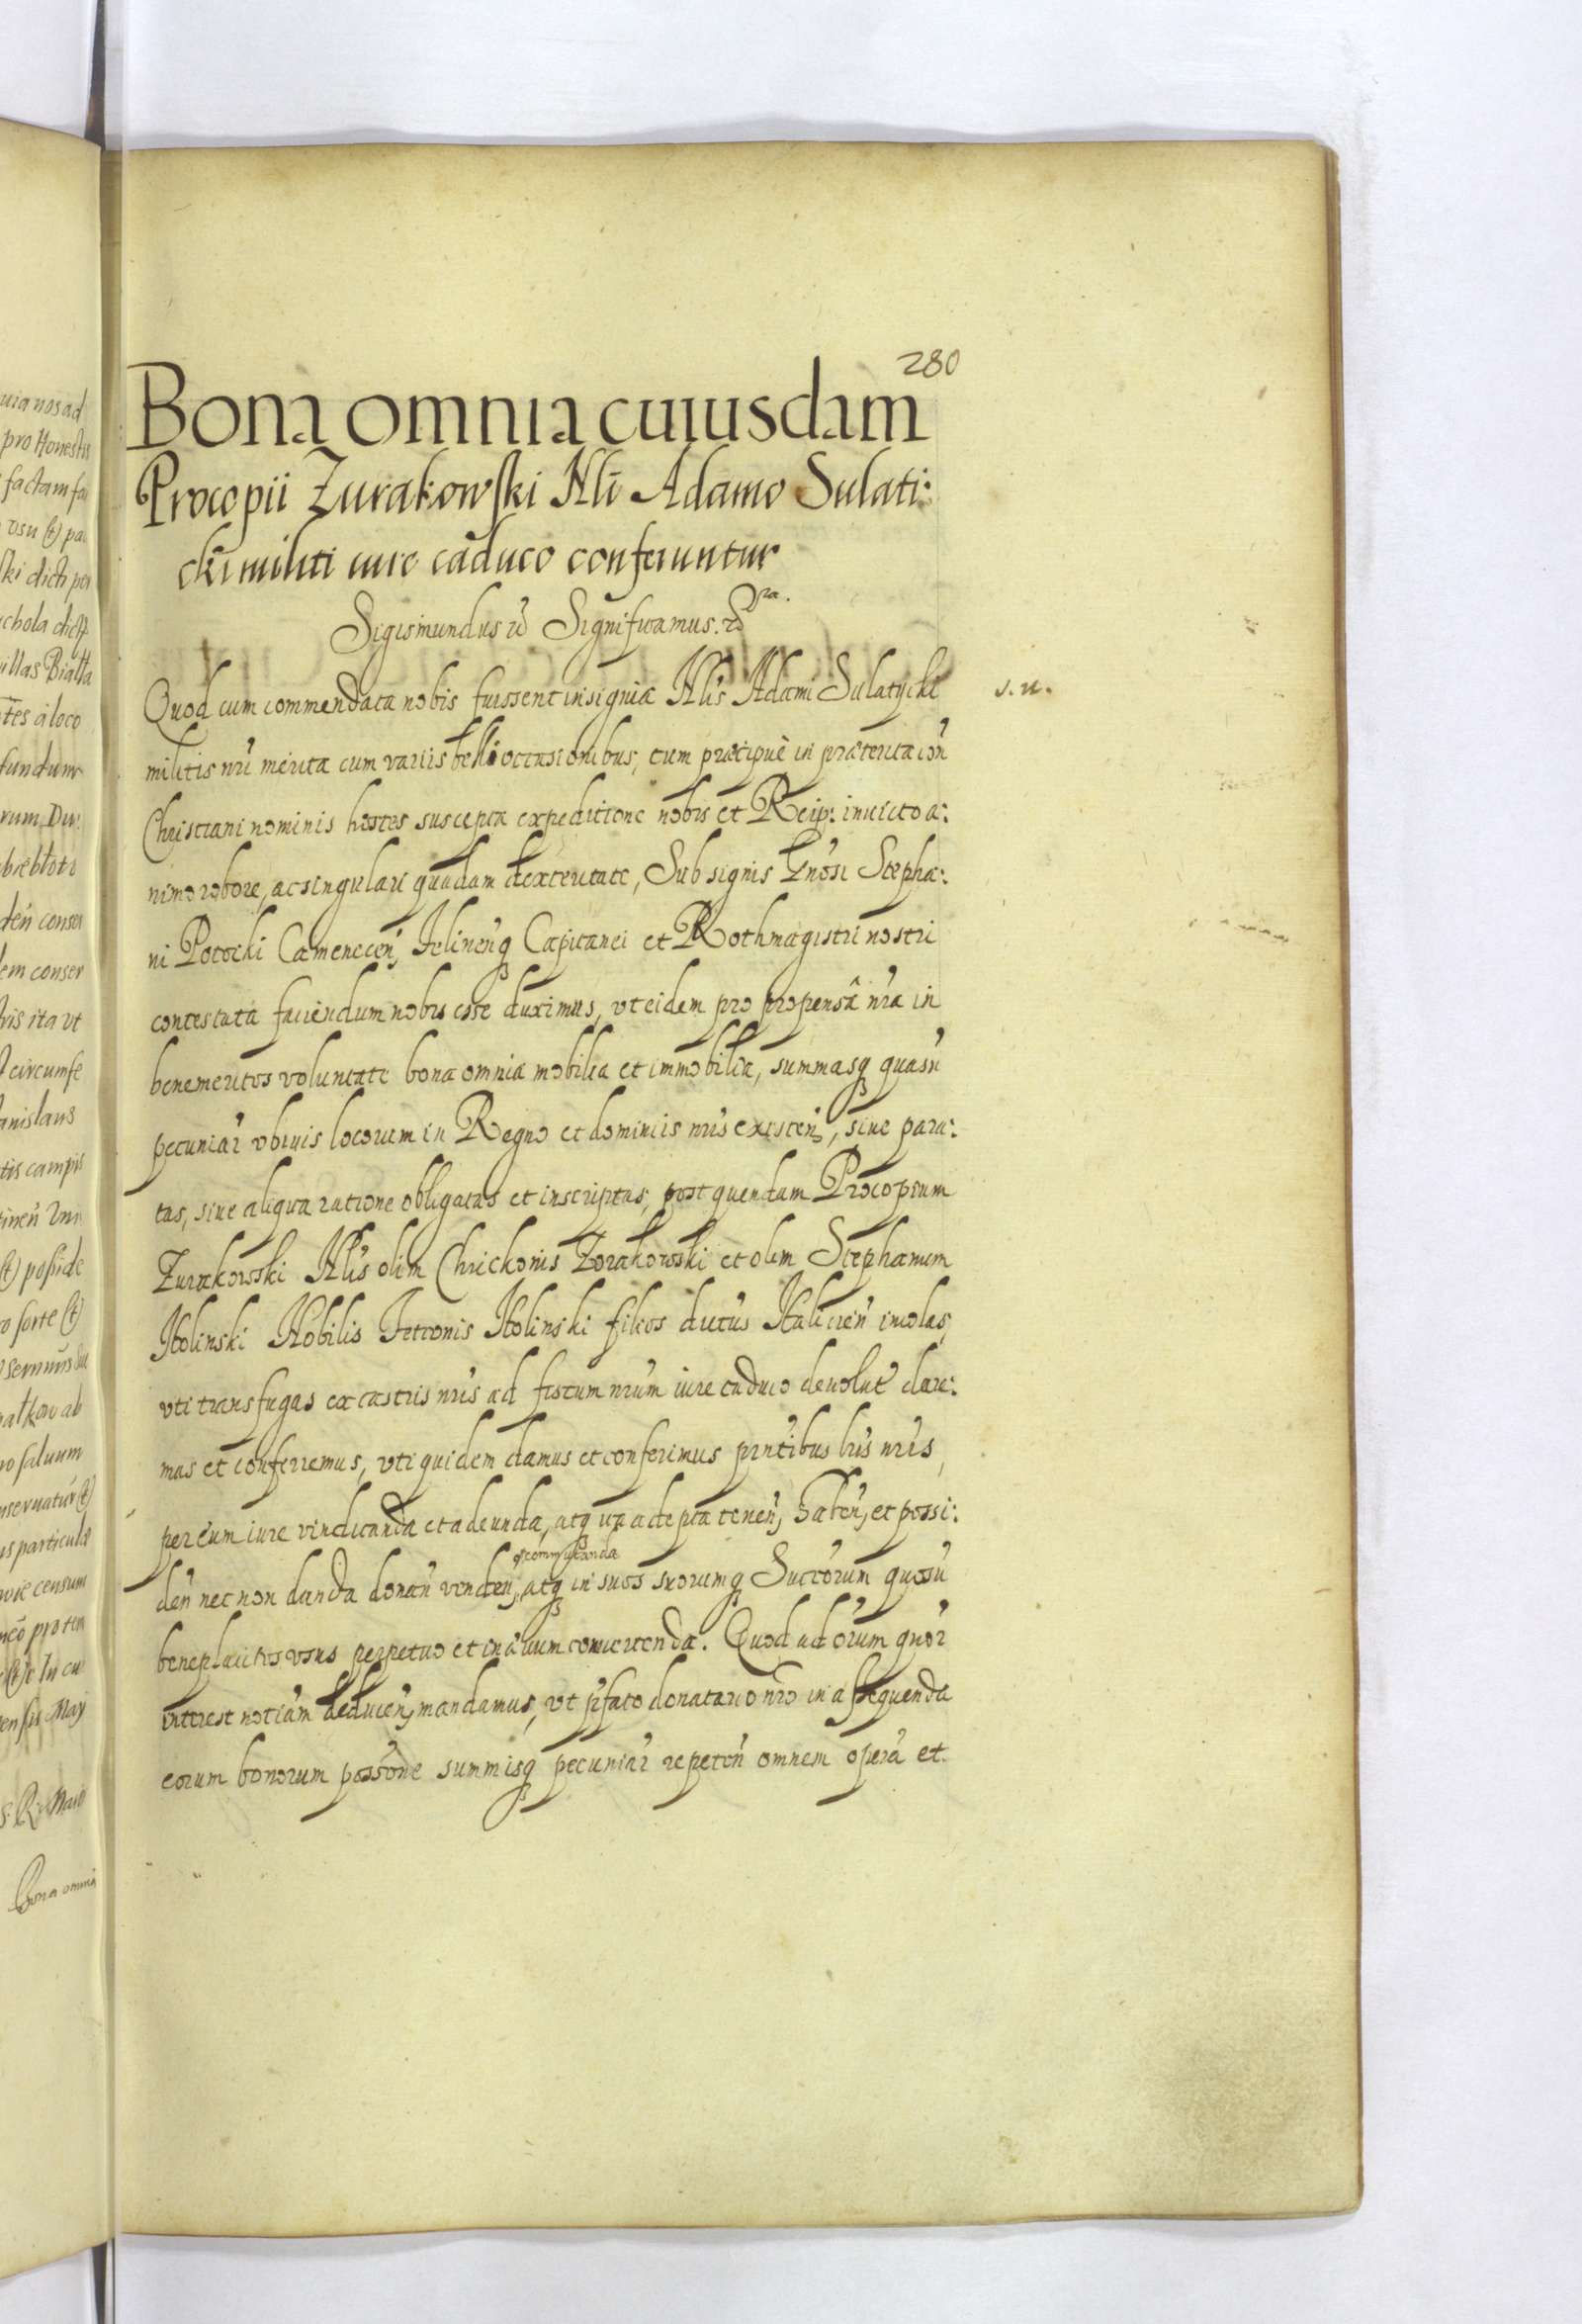 280
Bona omnia cuiusdam
Procopii Zurakowski Nli Adamo Sulati:
cki militi iure caduco conferuntur
Sigismundus Significamus.
Quod cum commendata nobis fuissent insignia Nlis Adami Sulatycki
s. n.
militis nri merita cum variis belli occasionibus, tum præcipuè in præterita con
Christiani nominis hostes suscepta expeditione nobis et Reip: inuicto a:
nimo robore, ac singulari quadam dexteritate, Sub signis Gnosi Stepha:
ni Potocki Camenecen, Felinenq Capitanei et Rothmagistri nostri
contestata faciendum nobis esse duximus, vt eidem pro propensâ nra in
benemeritos voluntate bona omnia mobilia et immobilia, summasq quasu
pecuniar vbiuis locorum in Regno et dominiis nris existen, siue para:
tas, siue aliqua ratione obligatas et inscriptas, post quendam Procopium
Zurakowski Nlis olim Chrickonis Zorakowski et olim Stephanum
Holinski Nobilis Fetionis Holinski filios ductus Halicien incolas,
vti transfugas ex castris nris ad fiscum nrum iure caduco deuolut dare:
mus et conferremus, vti quidem damus et conferimus pntibus lris nris,
per eum iure vindicanda et adeunda, atq vz adepta tenen, haben, et possi:
commutanda
den nec non danda donan venden, atq in suos suorumq Succorum quosu
beneplacitos vsus perpetuo et in æuum conuertenda. Quod ad orum quor
interest notiam deducen, mandamus, vt pfato donatario nro in assequenda
eorum bonorum possone summisq pecuniar repeten omnem opera et
uia nos ad
pro Honestis
factam fa
vsu (t) pa
ski dicti per
villas Bialla
tes à loco
fundum
rum Du:
den conser
dem conser
ris ita vt
circumfe
anislaus
tis campis
(t) posside
forte (t)
ro saluum
nseruatur (t)
us particula
censum
In cu
May
Bona omnia